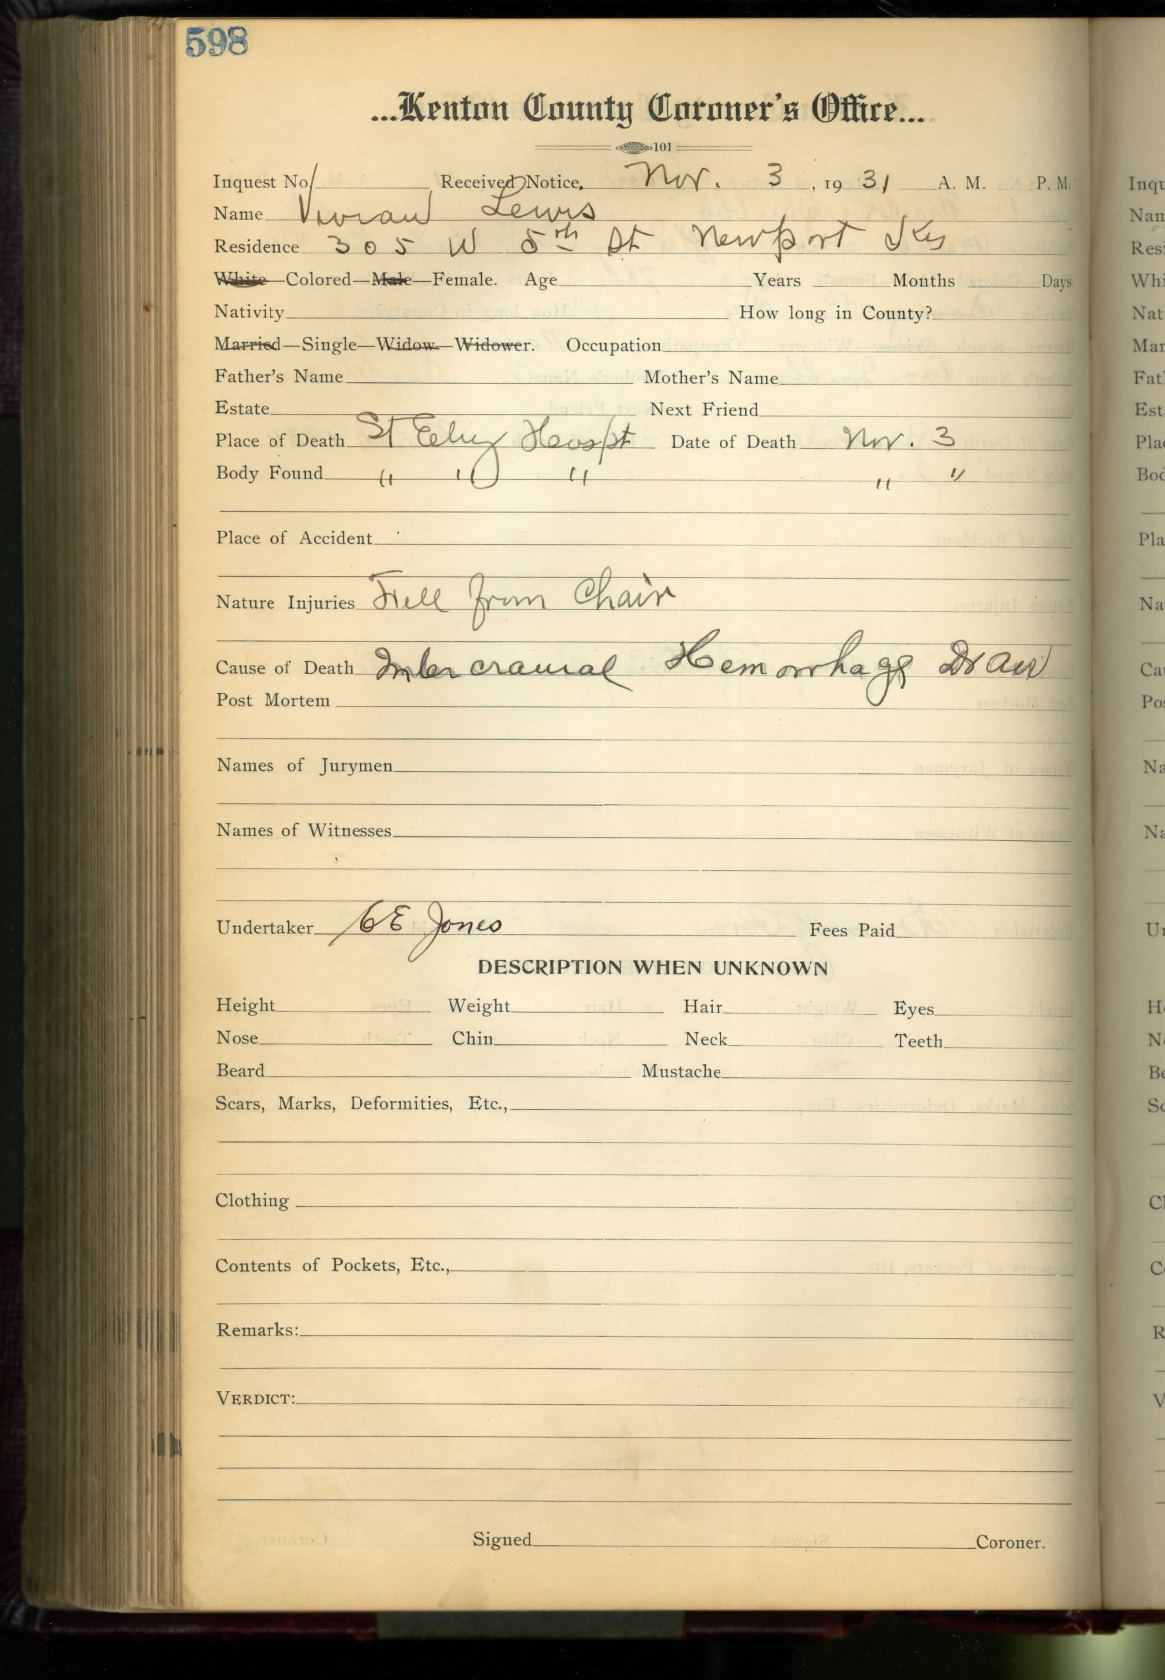 598
...Kenton County Coroner's Office...
101
Inquest No. Received Notice, Nov. 3, 1931 A. M. P. M.
Name Vivian Lewis
Residence 305 W 5th St Newport Ky
White—Colored—Male—Female. Age Years Months Days
Nativity How long in County?
Married—Single—Widow—Widower. Occupation
Father's Name Mother's Name
Estate Next Friend
Place of Death St Eliz Hospt Date of Death Nov. 3
Body Found " " " " "
Place of Accident
Nature Injuries Fell from Chair
Cause of Death Inter cranial Hemorrhage
Post Mortem
Names of Jurymen
Names of Witnesses
Undertaker CE Jones Fees Paid
DESCRIPTION WHEN UNKNOWN
Height Weight Hair Eyes
Nose Chin Neck Teeth
Beard Mustache
Scars, Marks, Deformities, Etc.,
Clothing
Contents of Pockets, Etc.,
Remarks:
VERDICT:
Signed Coroner.